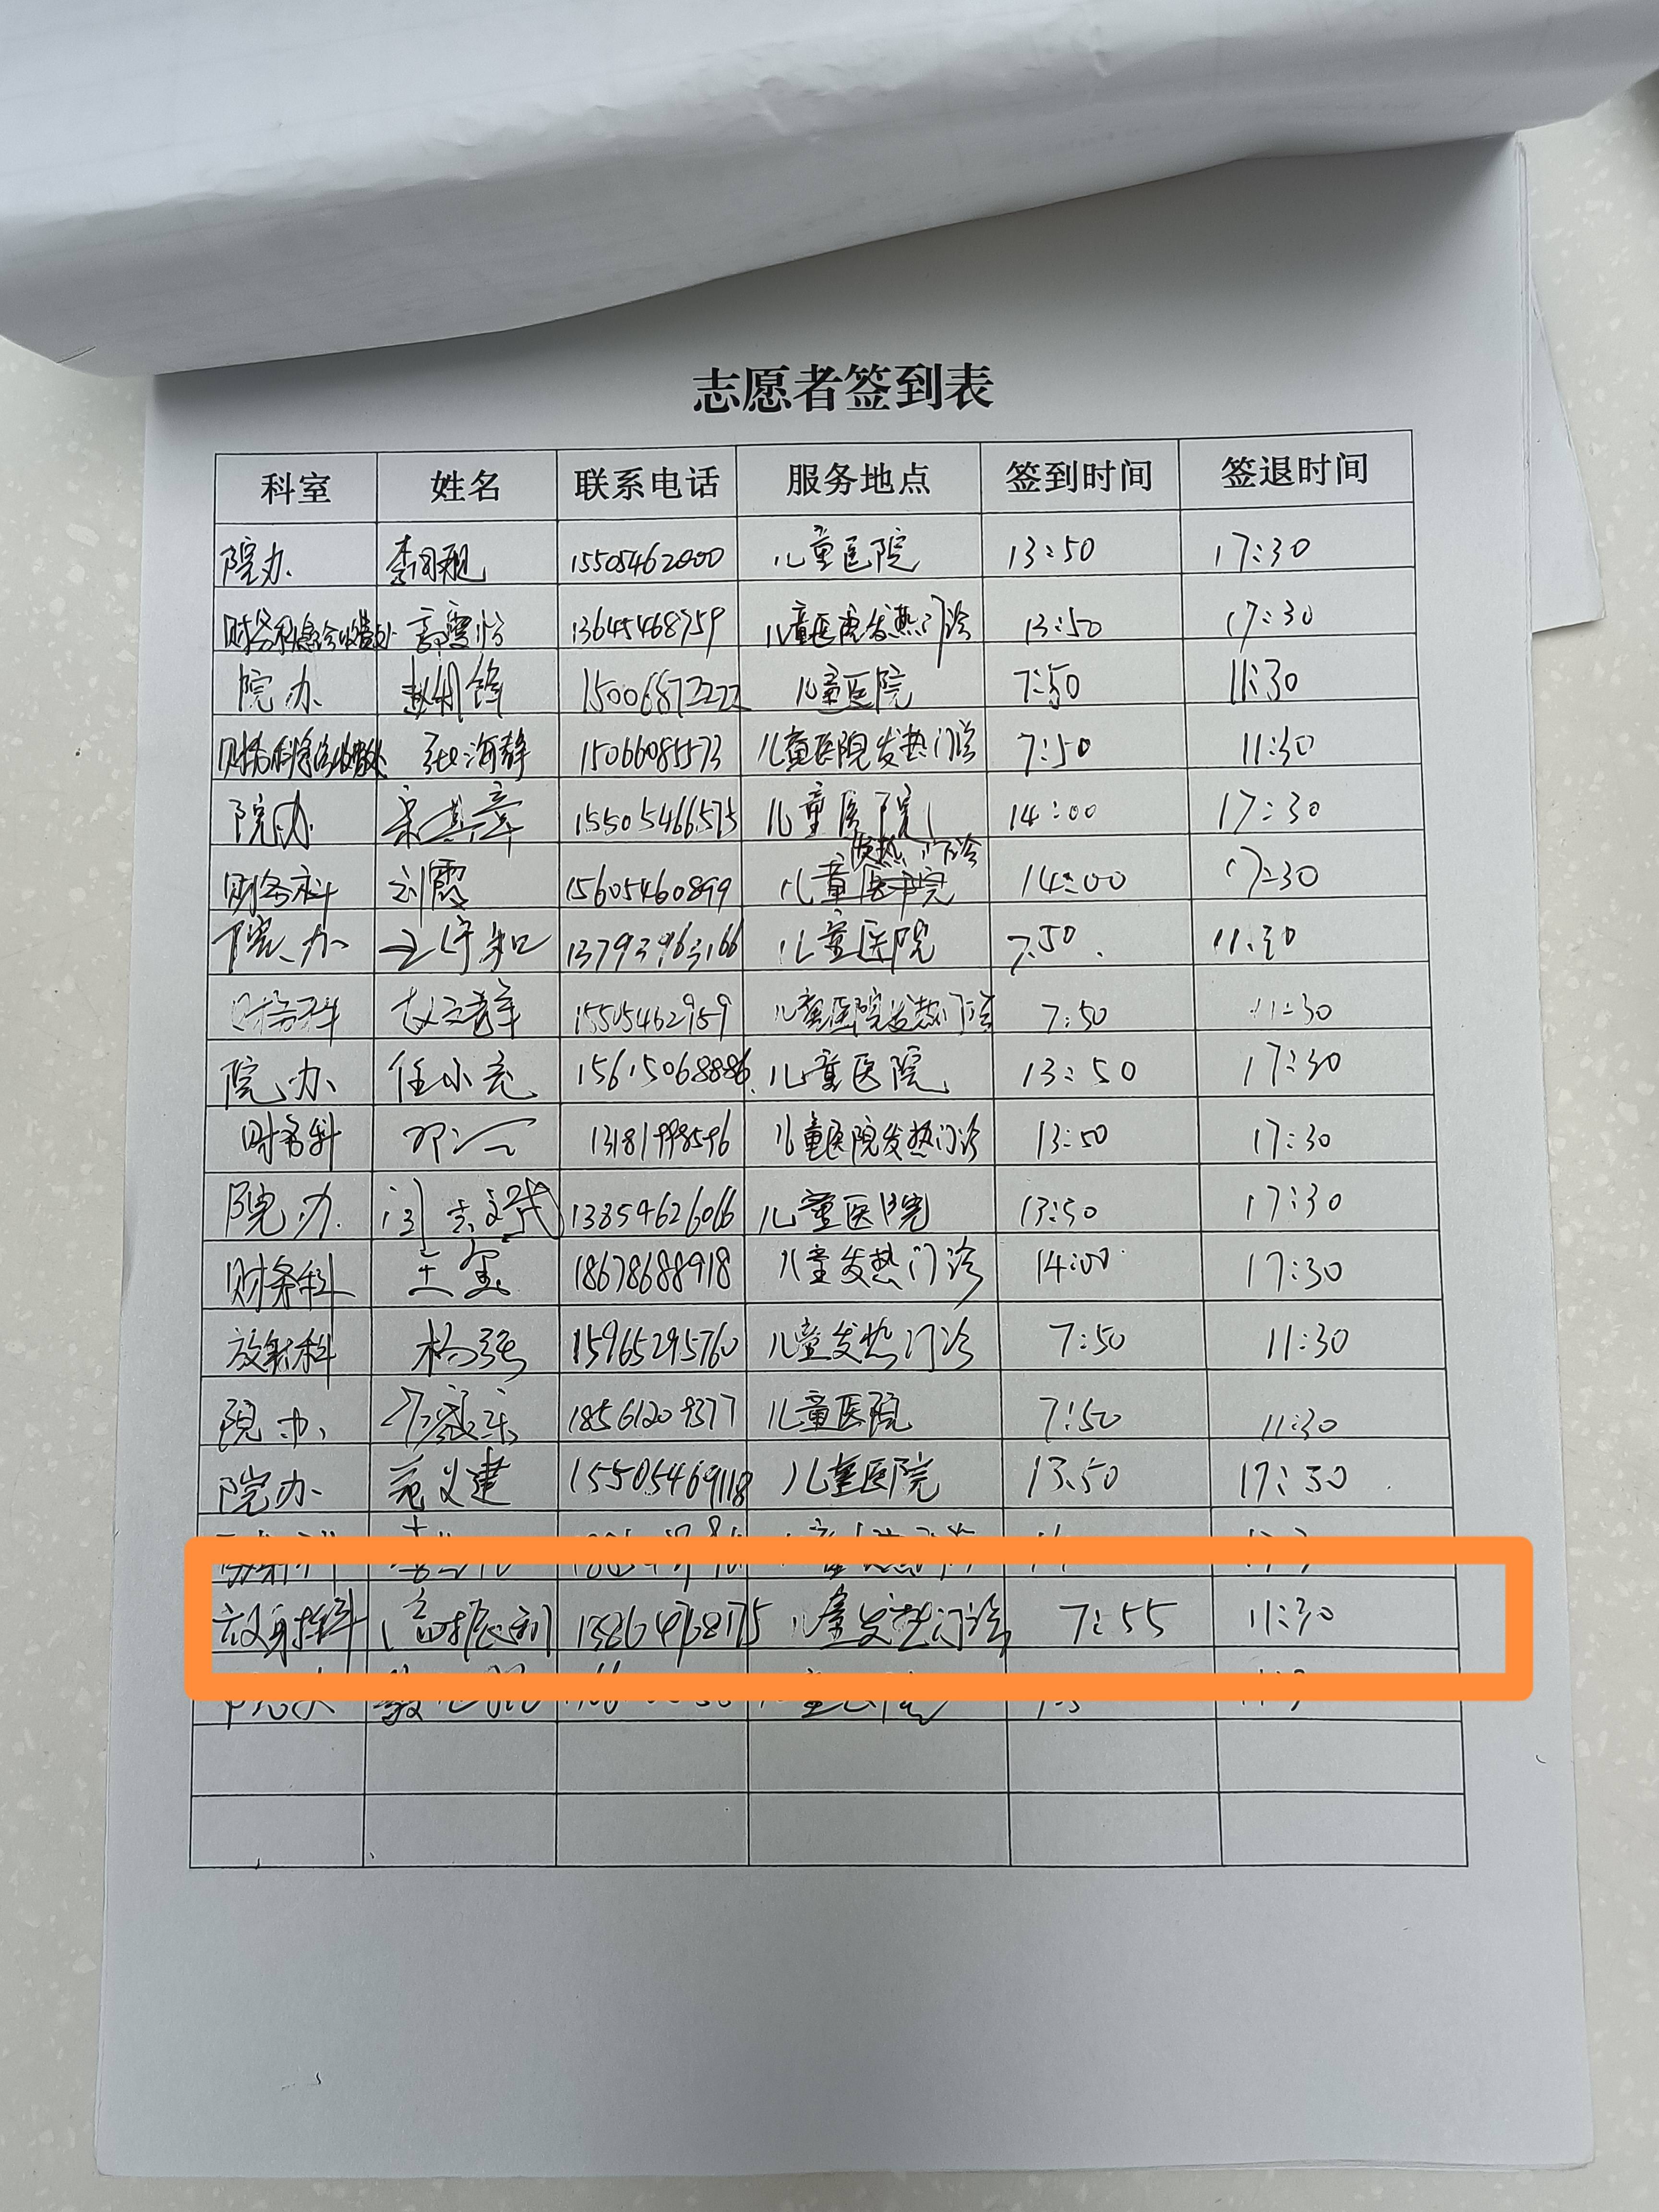 志愿者签到表
科室 姓名 联系电话 服务地点 签到时间 签退时间
院办 15505462000 儿童医院 13:50 17:30
13645468759 儿童医院发热门诊 13:50 17:30
院办 15006872222 儿童医院 7:50 11:30
张海静 15066085573 儿童医院发热门诊 7:50 11:30
院办 15505466575 儿童医院 14:00 17:30
发热门诊
财务科 刘霞 15605460899 儿童 14:00 17:30
院办 13793963166 儿童医院 7:50 11:30
财务科 15505462959 儿童医院发热门诊 7:50 11:30
院办 任小亮 15615068886 儿童医院 13:50 17:30
财务科 邓 13181998596 儿童医院发热门诊 13:50 17:30
院办 13854626066 儿童医院 13:50 17:30
财务科 王玺 18678688918 儿童发热门诊 14:00 17:30
放射科 杨强 15965295760 儿童发热门诊 7:50 11:30
院办 18561209377 儿童医院 7:50 11:30
院办 范义建 15505469118 儿童医院 13:50 17:30
放射科 高振利 儿童发热门诊 7:55 11:30